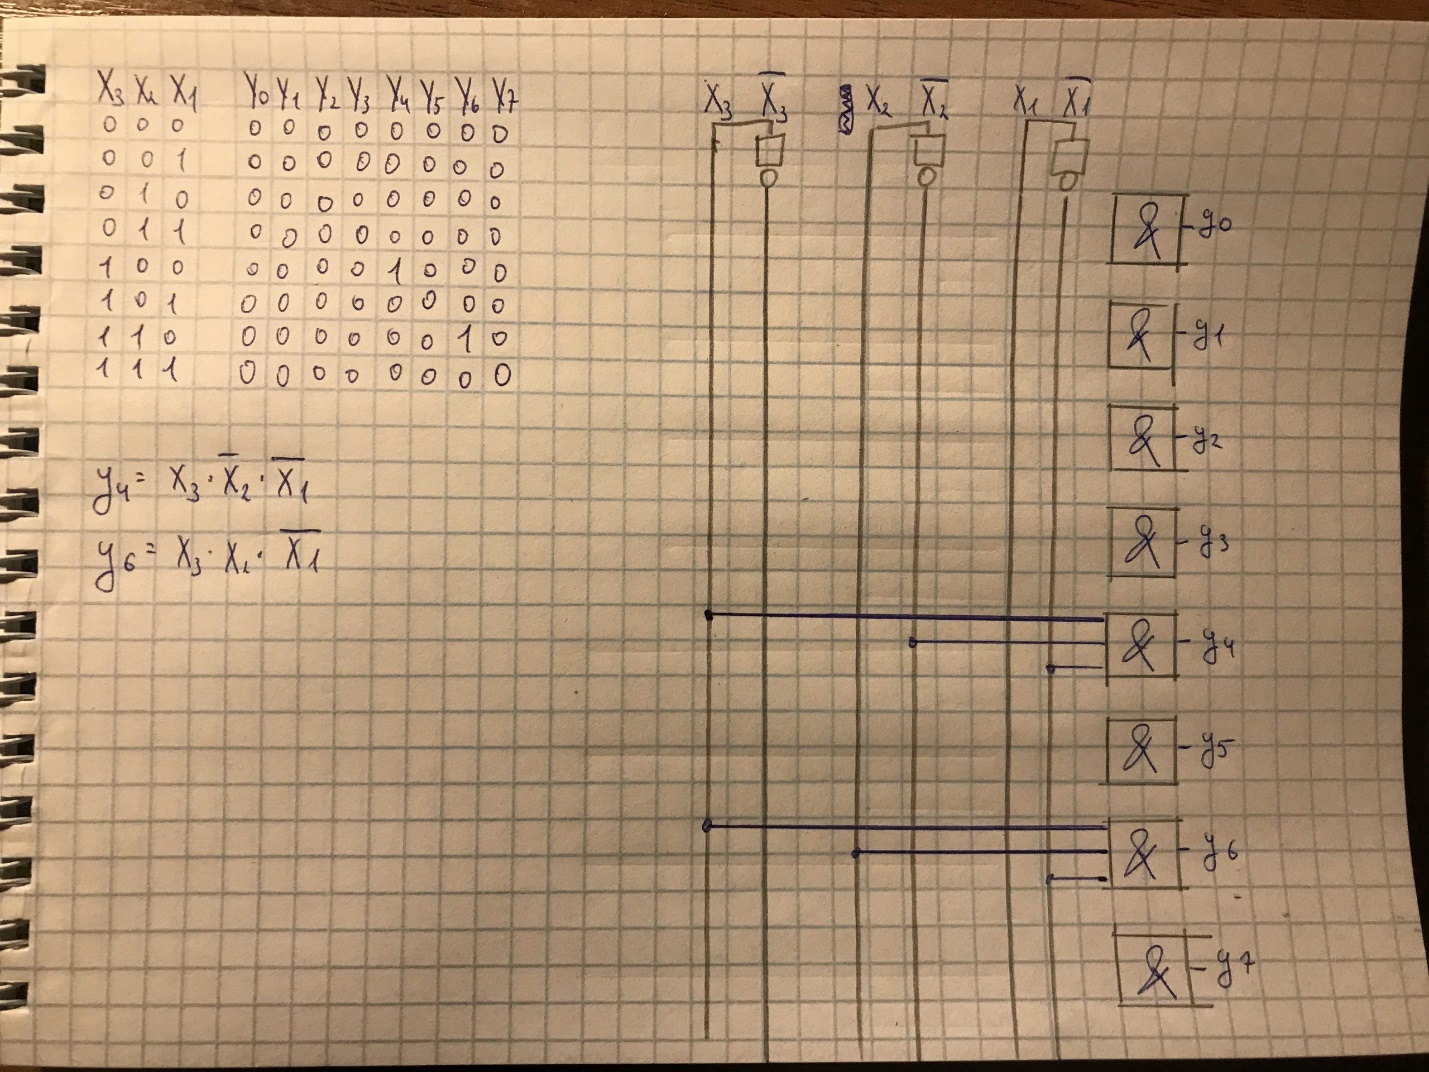 X3 X2 X1 Y0 Y1 Y2 Y3 Y4 Y5 Y6 Y7
0 0 0 0 0 0 0 0 0 0 0
0 0 1 0 0 0 0 0 0 0 0
0 1 0 0 0 0 0 0 0 0 0
0 1 1 0 0 0 0 0 0 0 0
1 0 0 0 0 0 0 1 0 0 0
1 0 1 0 0 0 0 0 0 0 0
1 1 0 0 0 0 0 0 0 1 0
1 1 1 0 0 0 0 0 0 0 0
y4 = X3 · X̅2 · X̅1
y6 = X3 · X2 · X̅1
X3 X̅3 X2 X̅2 X1 X̅1
& y0
& y1
& y2
& y3
& y4
& y5
& y6
& y7